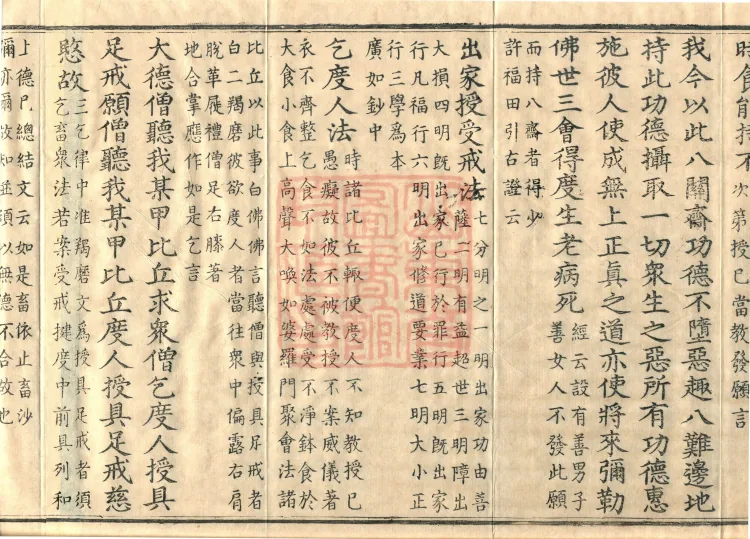 時食能持不 次第授已當教發願言
我今以此八關齋功德不墮惡趣八難邊地
持此功德攝取一切衆生之惡所有功德惠
施彼人使成無上正真之道亦使將來彌勒
佛世三會得度生老病死 經云設有善男子
善女人不發此願
而持八齋者得少
許福田引古證云
出家授受戒法 七分明之一明出家功由善
薩二明有益超世三明障出
大損四明旣出家已行於罪行五明旣出家
行凡福行六明出家修道要業七明大小正
行三學爲本
廣如鈔中
乞度人法 時諸比丘輒便度人不知教授已
愚癡故彼不被教授不案威儀著
衣不齊整乞食不如法處處受不淨鉢食於
大食小食上高聲大喚如婆羅門聚會法諸
比丘以此事白佛佛言聽僧與授具足戒者
白二羯磨彼欲度人者當往衆中偏露右肩
脫革屣禮僧足右膝著
地合掌應作如是乞言
大德僧聽我某甲比丘求衆僧乞度人授具
足戒願僧聽我某甲比丘度人授具足戒慈
愍故 三乞律中准羯磨文爲授具足戒者須
乞畜衆法若案受戒揵度中前具列和
上德已總結文云如是畜依止畜沙
彌亦爾故知並須以無德不合故也